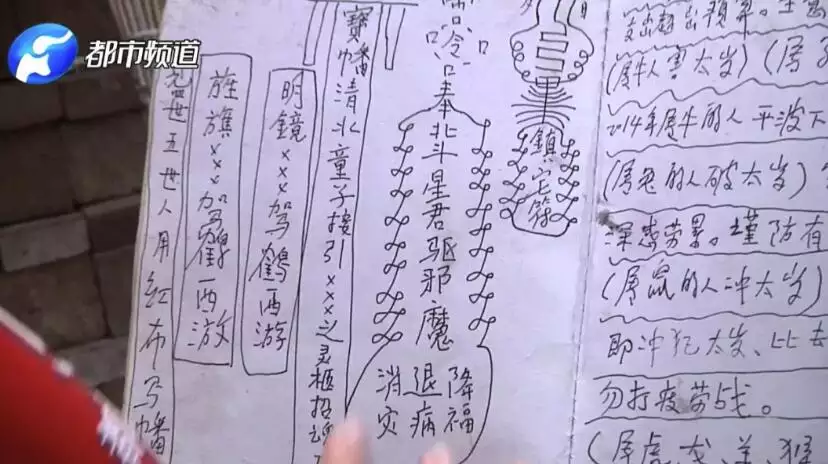 都市频道
支出超出预算。
(属牛人害太岁)(属
2014年属牛的人平波下
(属兔的人破太岁)
深感劳累。谨防有
(属鼠的人冲太岁)
即冲犯太岁、比去
勿打疲劳战。
(属虎、龙、羊、猴
鎮宅符
奉北斗星君驱邪魔
降福
退病
消灾
寶幡清北童子接引×××之灵柩招魂
明鏡×××驾鹤西游
旌旗×××驾鶴西游
世五世人用红布写幡